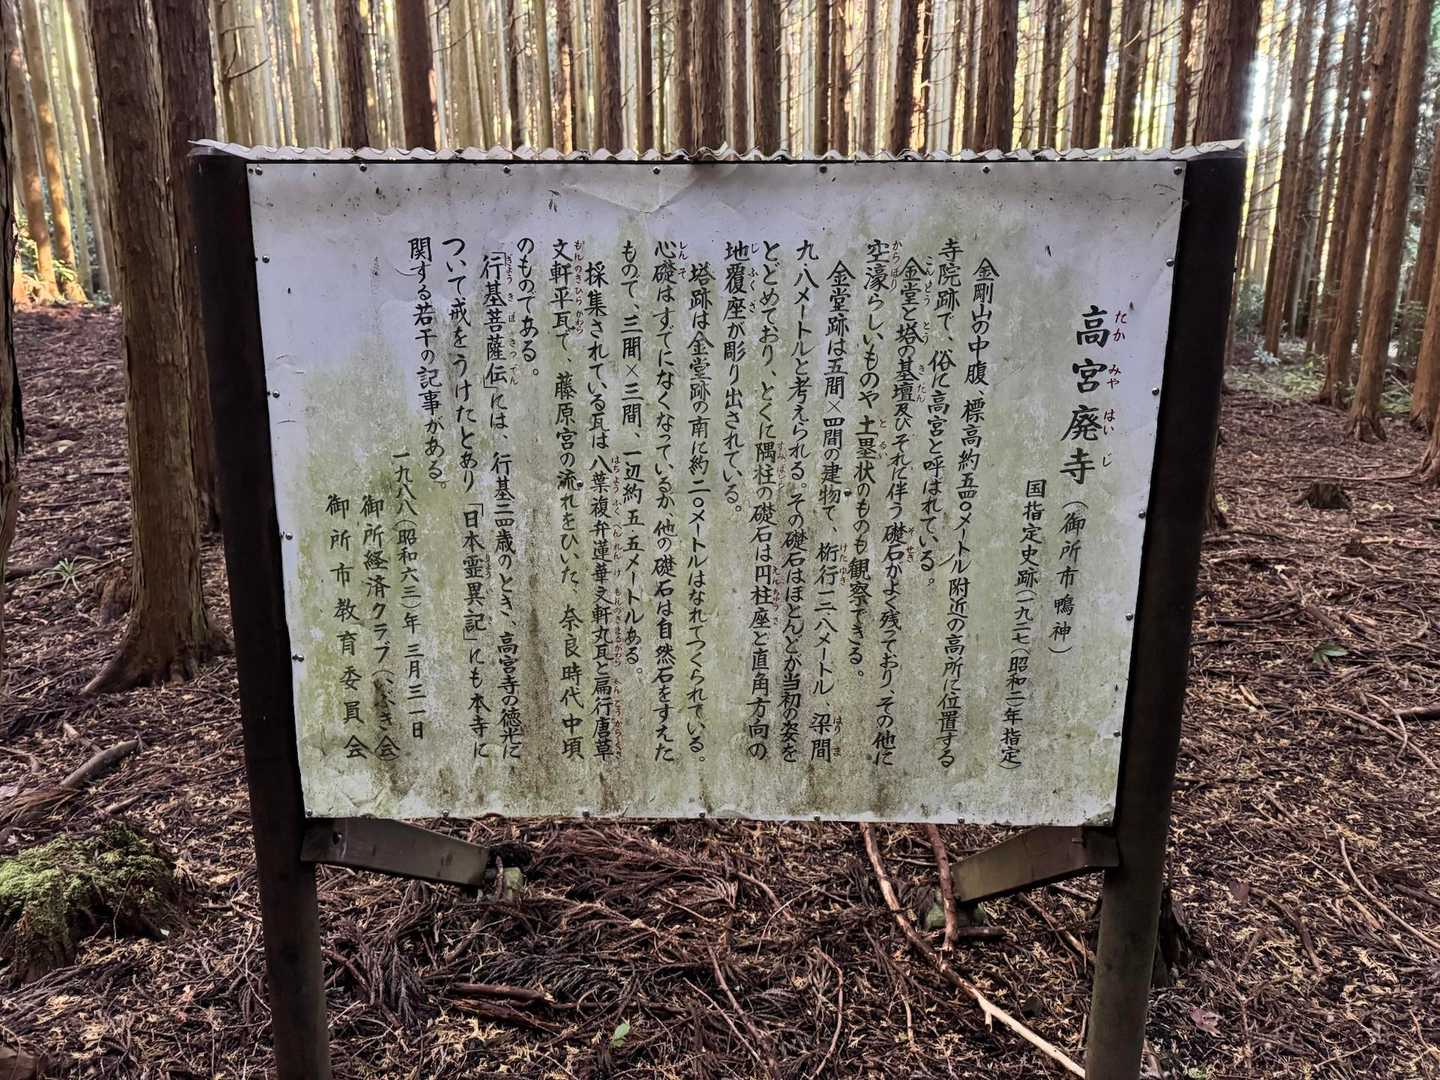 高宮廃寺（御所市鴨神）
国指定史跡（一九二七（昭和二）年指定）
金剛山の中腹、標高約五四〇メートル附近の高所に位置する
寺院跡で、俗に高宮と呼ばれている。
金堂と塔の基壇及びそれに伴う礎石がよく残っており、その他に
空濠らしいものや土塁状のものも観察できる。
金堂跡は五間×四間の建物で、桁行一二・八メートル、梁間
九・八メートルと考えられる。その礎石はほとんどが当初の姿を
とどめており、とくに隅柱の礎石は円柱座と直角方向の
地覆座が彫り出されている。
塔跡は金堂跡の南に約二〇メートルはなれてつくられている。
心礎はすでになくなっているが、他の礎石は自然石をすえた
もので、三間×三間、一辺約五・五メートルある。
採集されている瓦は八葉複弁蓮華文軒丸瓦と扁行唐草
文軒平瓦で、藤原宮の流れをひいた、奈良時代中頃
のものである。
「行基菩薩伝」には、行基三四歳のとき、高宮寺の徳光に
ついて戒をうけたとあり「日本霊異記」にも本寺に
関する若干の記事がある。
一九八八（昭和六三）年三月三一日
御所経済クラブ（いぶき会）
御所市教育委員会